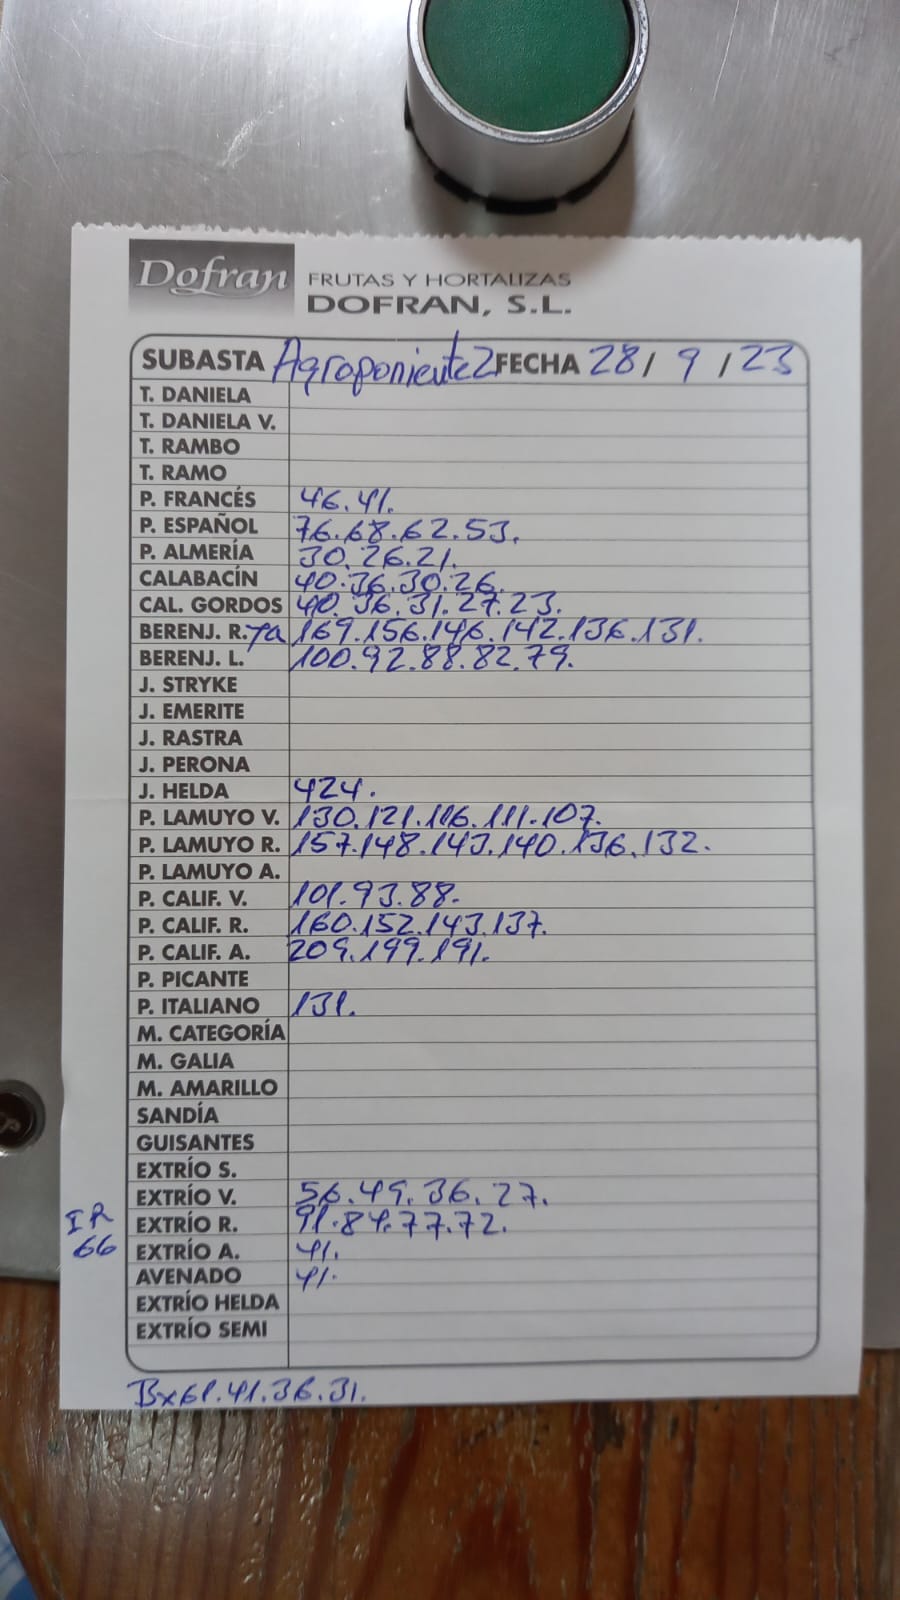 Dofran FRUTAS Y HORTALIZAS
DOFRAN, S.L.
SUBASTA Agroponiente2 FECHA 28/9/23
T. DANIELA
T. DANIELA V.
T. RAMBO
T. RAMO
P. FRANCÉS 46.41.
P. ESPAÑOL 76.68.62.53.
P. ALMERÍA 30.26.21.
CALABACÍN 40.36.30.26.
CAL. GORDOS 40.36.31.27.23.
BERENJ. R. ya 169.156.146.142.136.131.
BERENJ. L. 100.92.88.82.79.
J. STRYKE
J. EMERITE
J. RASTRA
J. PERONA
J. HELDA 424.
P. LAMUYO V. 130.121.116.111.107.
P. LAMUYO R. 157.148.143.140.136.132.
P. LAMUYO A.
P. CALIF. V. 101.93.88.
P. CALIF. R. 160.152.143.137.
P. CALIF. A. 209.199.191.
P. PICANTE
P. ITALIANO 131.
M. CATEGORÍA
M. GALIA
M. AMARILLO
SANDÍA
GUISANTES
EXTRÍO S.
EXTRÍO V. 56.49.36.27.
IR EXTRÍO R. 91.84.77.72.
66 EXTRÍO A. 41.
AVENADO 41.
EXTRÍO HELDA
EXTRÍO SEMI
Bx61.41.36.31.